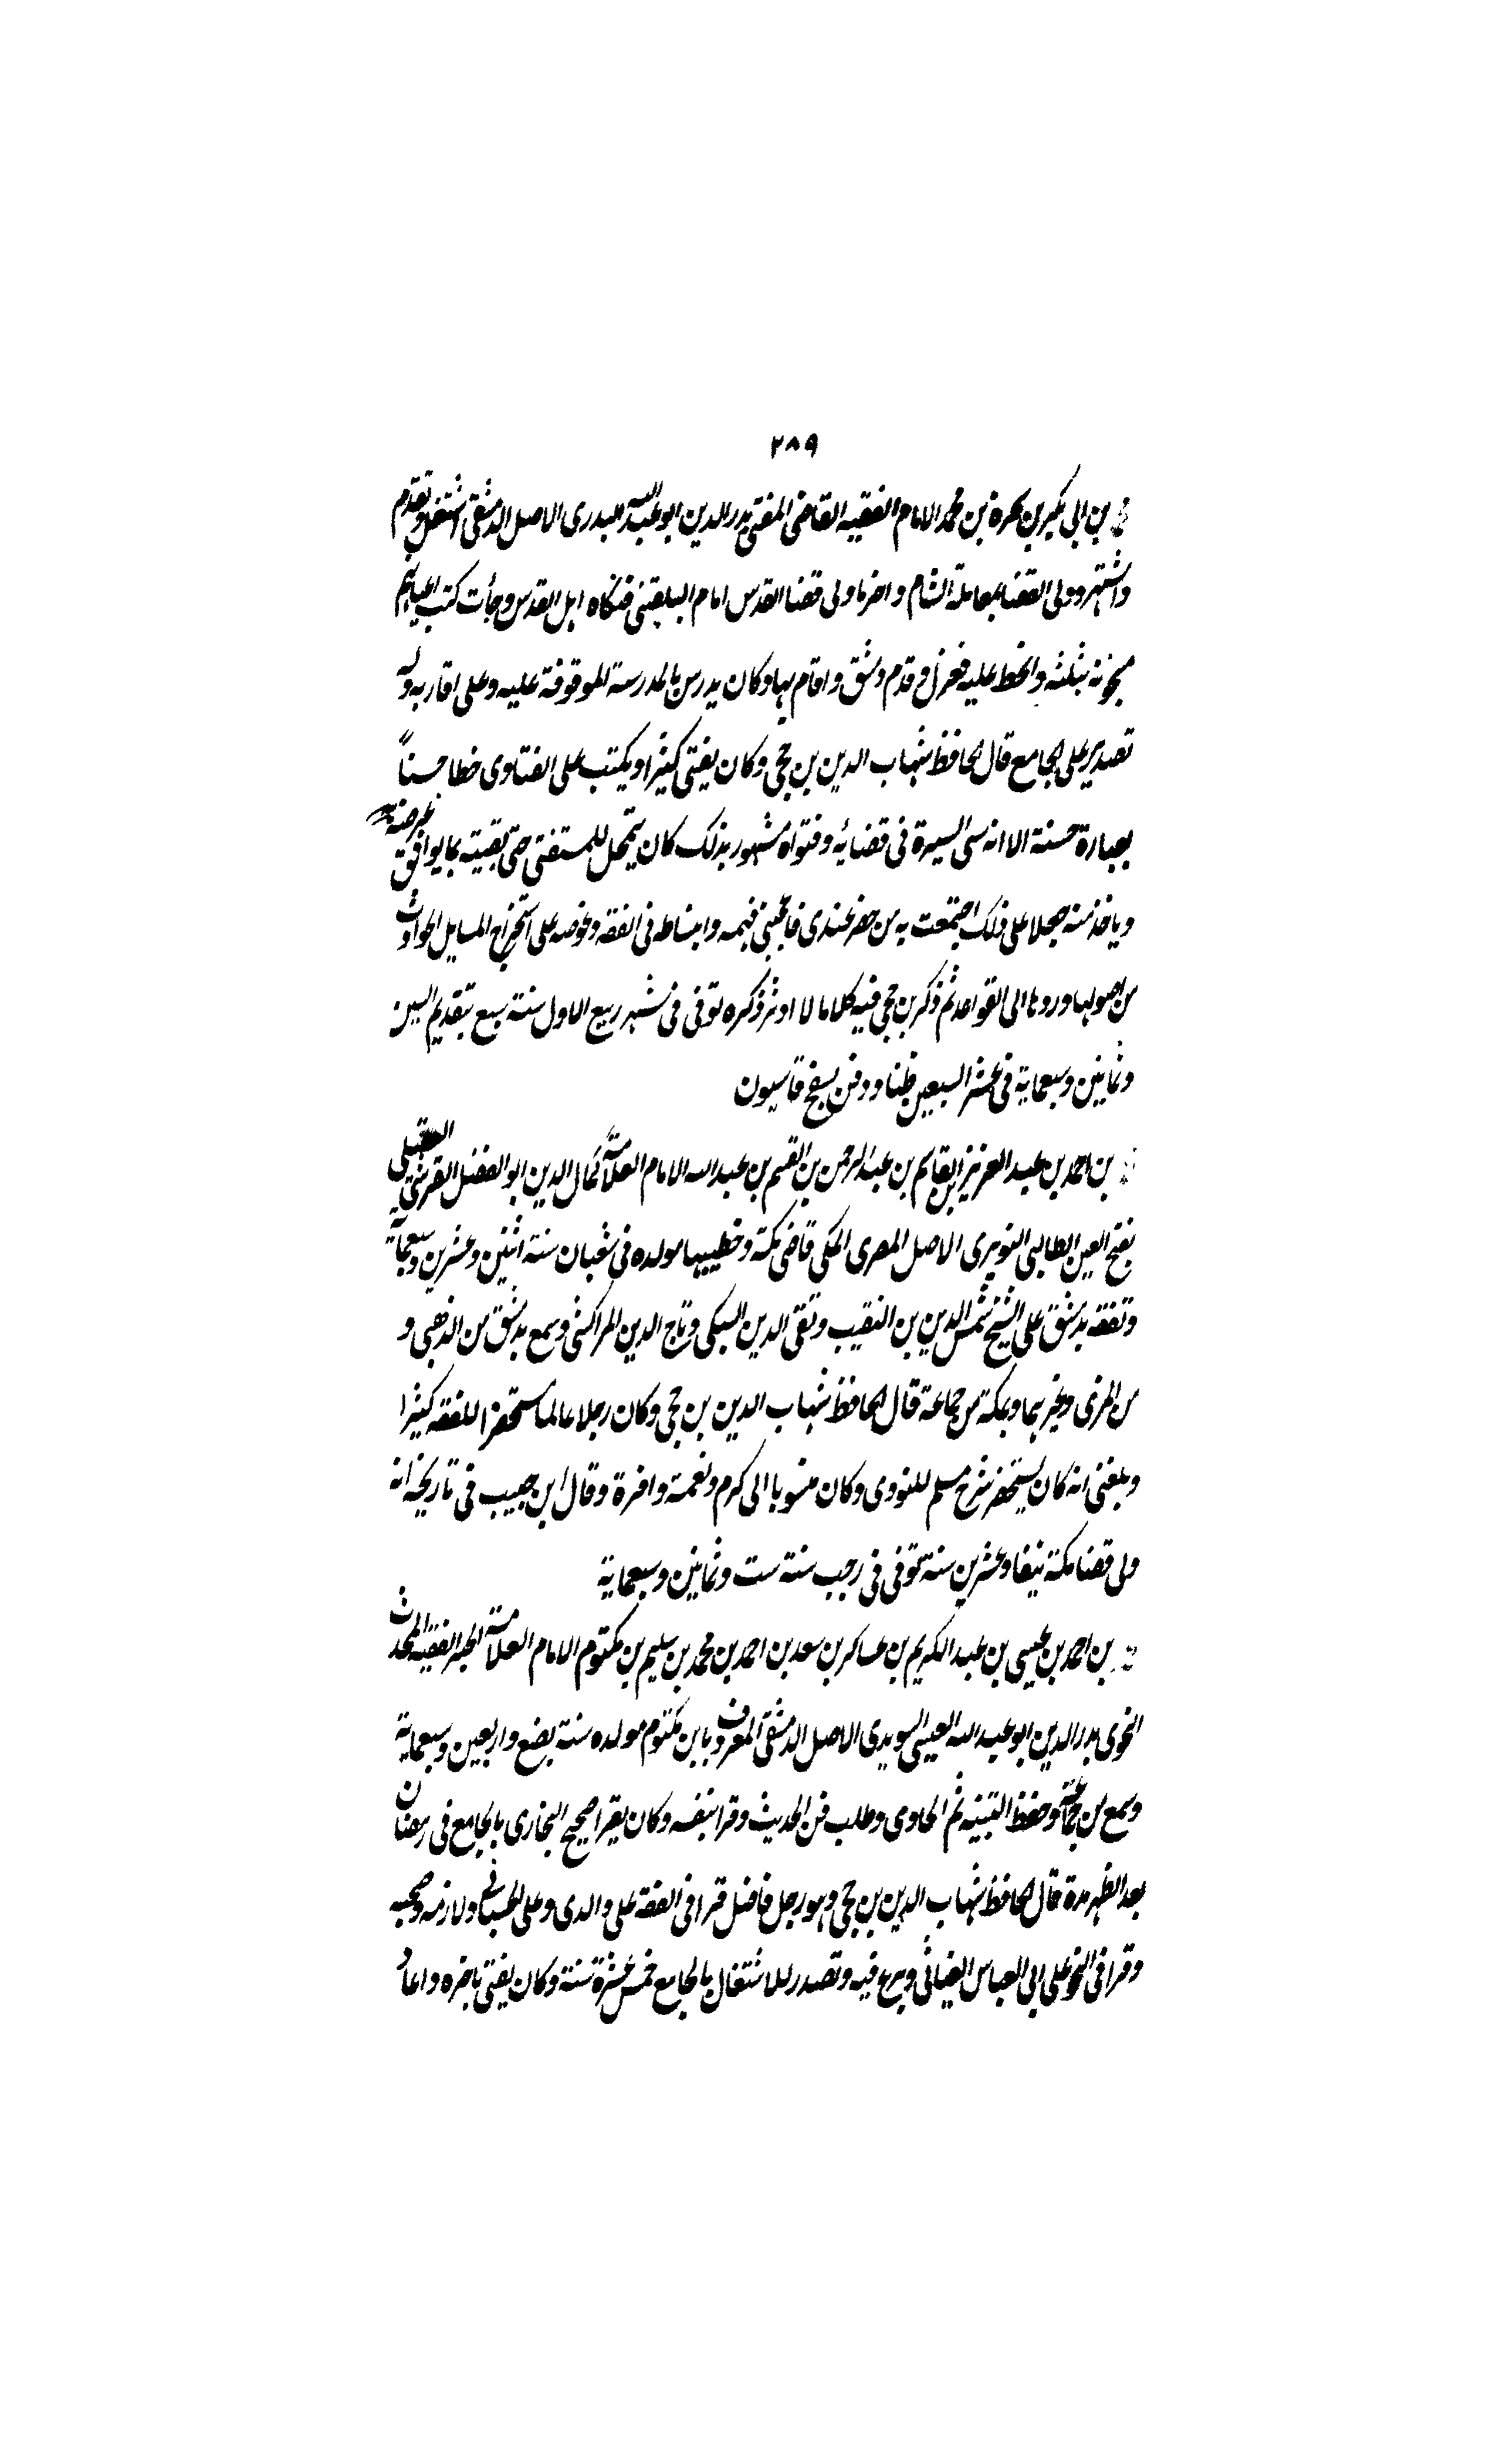 ٢٨٩
بن ابى بكر بن شجرة بن محمد الامام الفقيه القاضى المفتى بدر الدين ابو عبد الله التدمرى الاصل الدمشقى اشتغل وتقدم
واشتهر وولى القضا بمعاملة الشام واخرما ولى قضا القدس امام البلقينى فشكاه اهل القدس وجأت كتب اعيانهم
بثلثه والحط عليه فعزل وقدم دمشق واقام بها وكان يدرس بالمدرسة الموقوفة عليه وعلى اقاربه وله
تصدير على الجامع قال الحافظ شهاب الدين بن حجى وكان يفتى كثيرا ويكتب على الفتاوى خطا حسناً
بعبارة حسنة الا انه سى السيرة فى قضايه وفتواه مشهور بذلك كان يتمحل للمستفتى حتى يفتيه بما يوافق غرضه
وياخذ منه جعلا على ذلك اجتمعت به من حضر عندى فاعجبنى فهمه واستنباطه فى الفقه وغوصه على استخراج المسايل الحوادث
من اصولها وردها الى القواعد ثم ذكر بن حجى فيه كلاما لا اوثر ذكره توفى فى شهر ربيع الاول سنة سبع بتقديم السين
وثمانين وسبعماية فى عشر السبعين ظنا ودفن بسفح قاسيون
بن احمد بن عبد العزيز بن القاسم بن عبد الرحمن بن القسم بن عبد الله الامام العلامة كمال الدين ابو الفضل القرشى العقيلى
بفتح العين الطالبى النويرى الاصل المصرى المكى قاضى مكة وخطيبها مولده فى شعبان سنة اثنين وعشرين وسبعماية
وتفقه بدمشق على الشيخ شمس الدين بن النقيب وتقى الدين السبكى وتاج الدين المراكشى وسمع بدمشق من الذهبى و
من المزى وغيرهما وبمكة من جماعة قال الحافظ شهاب الدين بن حجى وكان رجلا عالما مستحضرا للفقه كثيرا
وبلغنى انه كان يستحضر شرح مسلم للنووى وكان منسوبا الى كرم ونعمة وافرة وقال ابن حبيب فى تاريخه انه
ولى قضا مكة نيفا وعشرين سنة توفى فى رجب سنة ست وثمانين وسبعماية
بن احمد بن عيسى بن عبد الكريم بن عساكر بن سعد بن احمد بن محمد بن سليم بن مكتوم الامام العلامة الحبر الفقيه المحدث
النحوى بدر الدين ابو عبد الله العيسى السويدى الاصل الدمشقى المعروف بابن مكتوم مولده سنة بضع واربعين وسبعماية
وسمع من جماعة وحفظ التنبيه ثم الحاوى وطلب فن الحديث وقرا بنفسه وكان يقرا صحيح البخارى بالجامع فى رمضان
بعد الظهر مدة قال الحافظ شهاب الدين بن حجى وهو رجل فاضل قرا فى الفقه على والدى وعلى الحسبانى ولازمه وصحبه
وقرا فى النحو على ابى العباس العنابى وبرع فيه وتصدر للاشتغال بالجامع خمس عشرة سنة وكان يفتى باخره واعاد